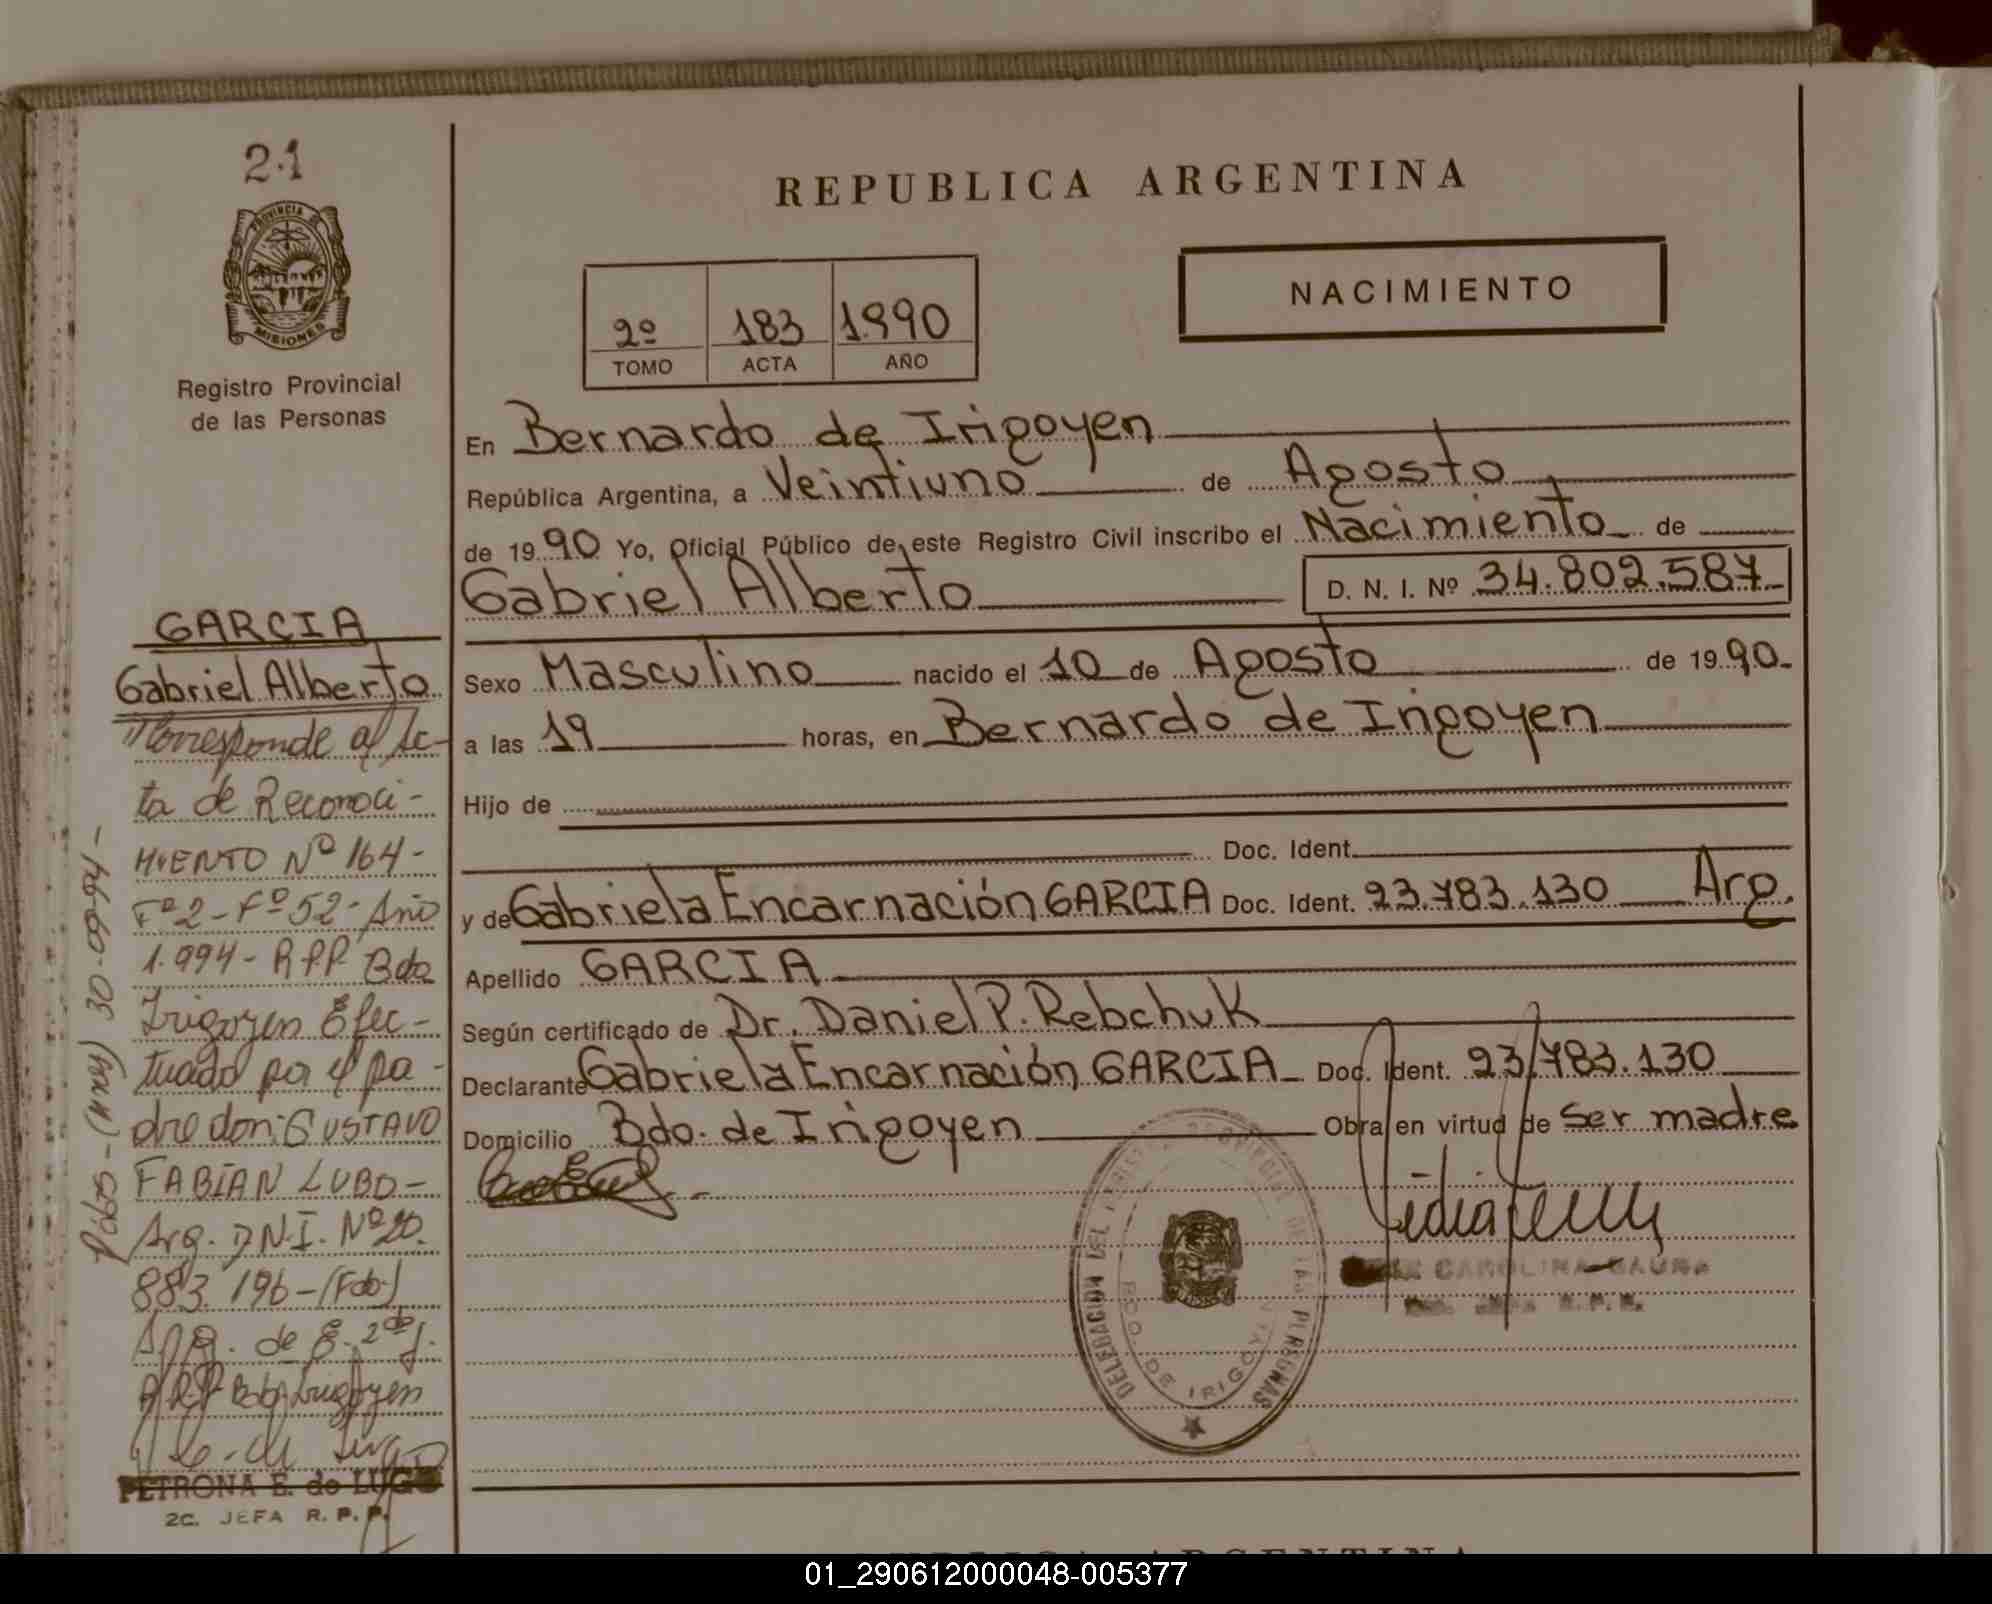 21
PROVINCIA DE
MISIONES
Registro Provincial
de las Personas
GARCIA
Gabriel Alberto
Corresponde al Ac-
ta de Reconoci-
MIENTO Nº 164-
Tº 2-Fº 52- Año
1.994- R.P.P. Bdo
Irigoyen Efec-
tuado por el pa-
dre don: GUSTAVO
FABIAN LUBO-
Arg. D.N.I. Nº 20.
883.196-(Fdo)
de E. 2da J.
R.P.P. Bdo Irigoyen
PETRONA E. de LUGO
2C. JEFA R. P. P.
30-09-94-
REPUBLICA ARGENTINA
NACIMIENTO
2º 183 1.990
TOMO ACTA AÑO
En Bernardo de Irigoyen
República Argentina, a Veintiuno de Agosto
de 19 90 Yo, Oficial Público de este Registro Civil inscribo el Nacimiento de
Gabriel Alberto D. N. I. Nº 34.802.587
Sexo Masculino nacido el 10 de Agosto de 19 90.
a las 19 horas, en Bernardo de Irigoyen
Hijo de
Doc. Ident.
y de Gabriela Encarnación GARCIA Doc. Ident. 23.783.130 Arg.
Apellido GARCIA
Según certificado de Dr. Daniel P. Rebchuk
Declarante Gabriela Encarnación GARCIA Doc. Ident. 23.783.130
Domicilio Bdo. de Irigoyen Obra en virtud de Ser madre
DELEGACION DEL REGISTRO PROVINCIAL DE LAS PERSONAS
BDO. DE IRIGOYEN
CAROLINA
R. P. P.
REPUBLICA ARGENTINA
01_290612000048-005377